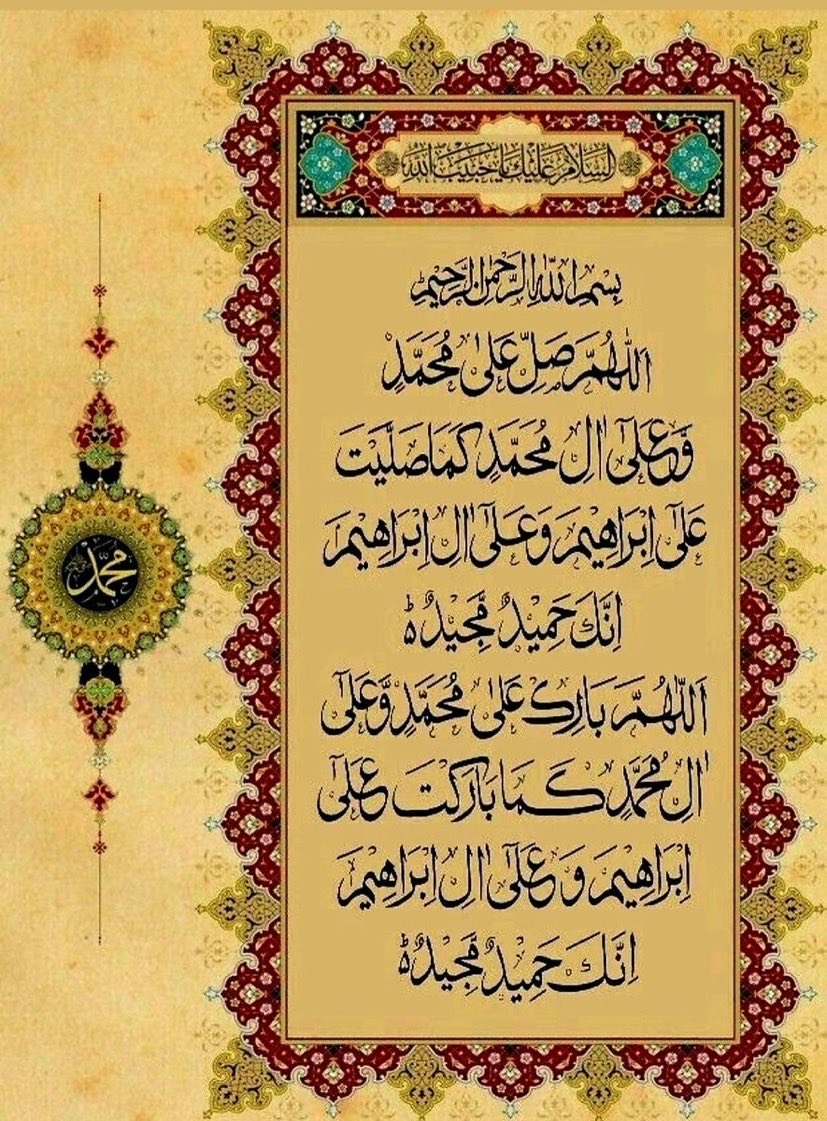 السلام عليك يا حبيب الله
بِسْمِ اللّٰهِ الرَّحْمٰنِ الرَّحِيْمِ
اَللّٰهُمَّ صَلِّ عَلٰى مُحَمَّدٍ
وَّعَلٰٓى اٰلِ مُحَمَّدٍ كَمَا صَلَّيْتَ
عَلٰٓى اِبْرَاهِيْمَ وَعَلٰٓى اٰلِ اِبْرَاهِيْمَ
اِنَّكَ حَمِيْدٌ مَّجِيْدٌ ؕ
اَللّٰهُمَّ بَارِكْ عَلٰى مُحَمَّدٍ وَّعَلٰٓى
اٰلِ مُحَمَّدٍ كَمَا بَارَكْتَ عَلٰٓى
اِبْرَاهِيْمَ وَعَلٰٓى اٰلِ اِبْرَاهِيْمَ
اِنَّكَ حَمِيْدٌ مَّجِيْدٌ ؕ
محمد